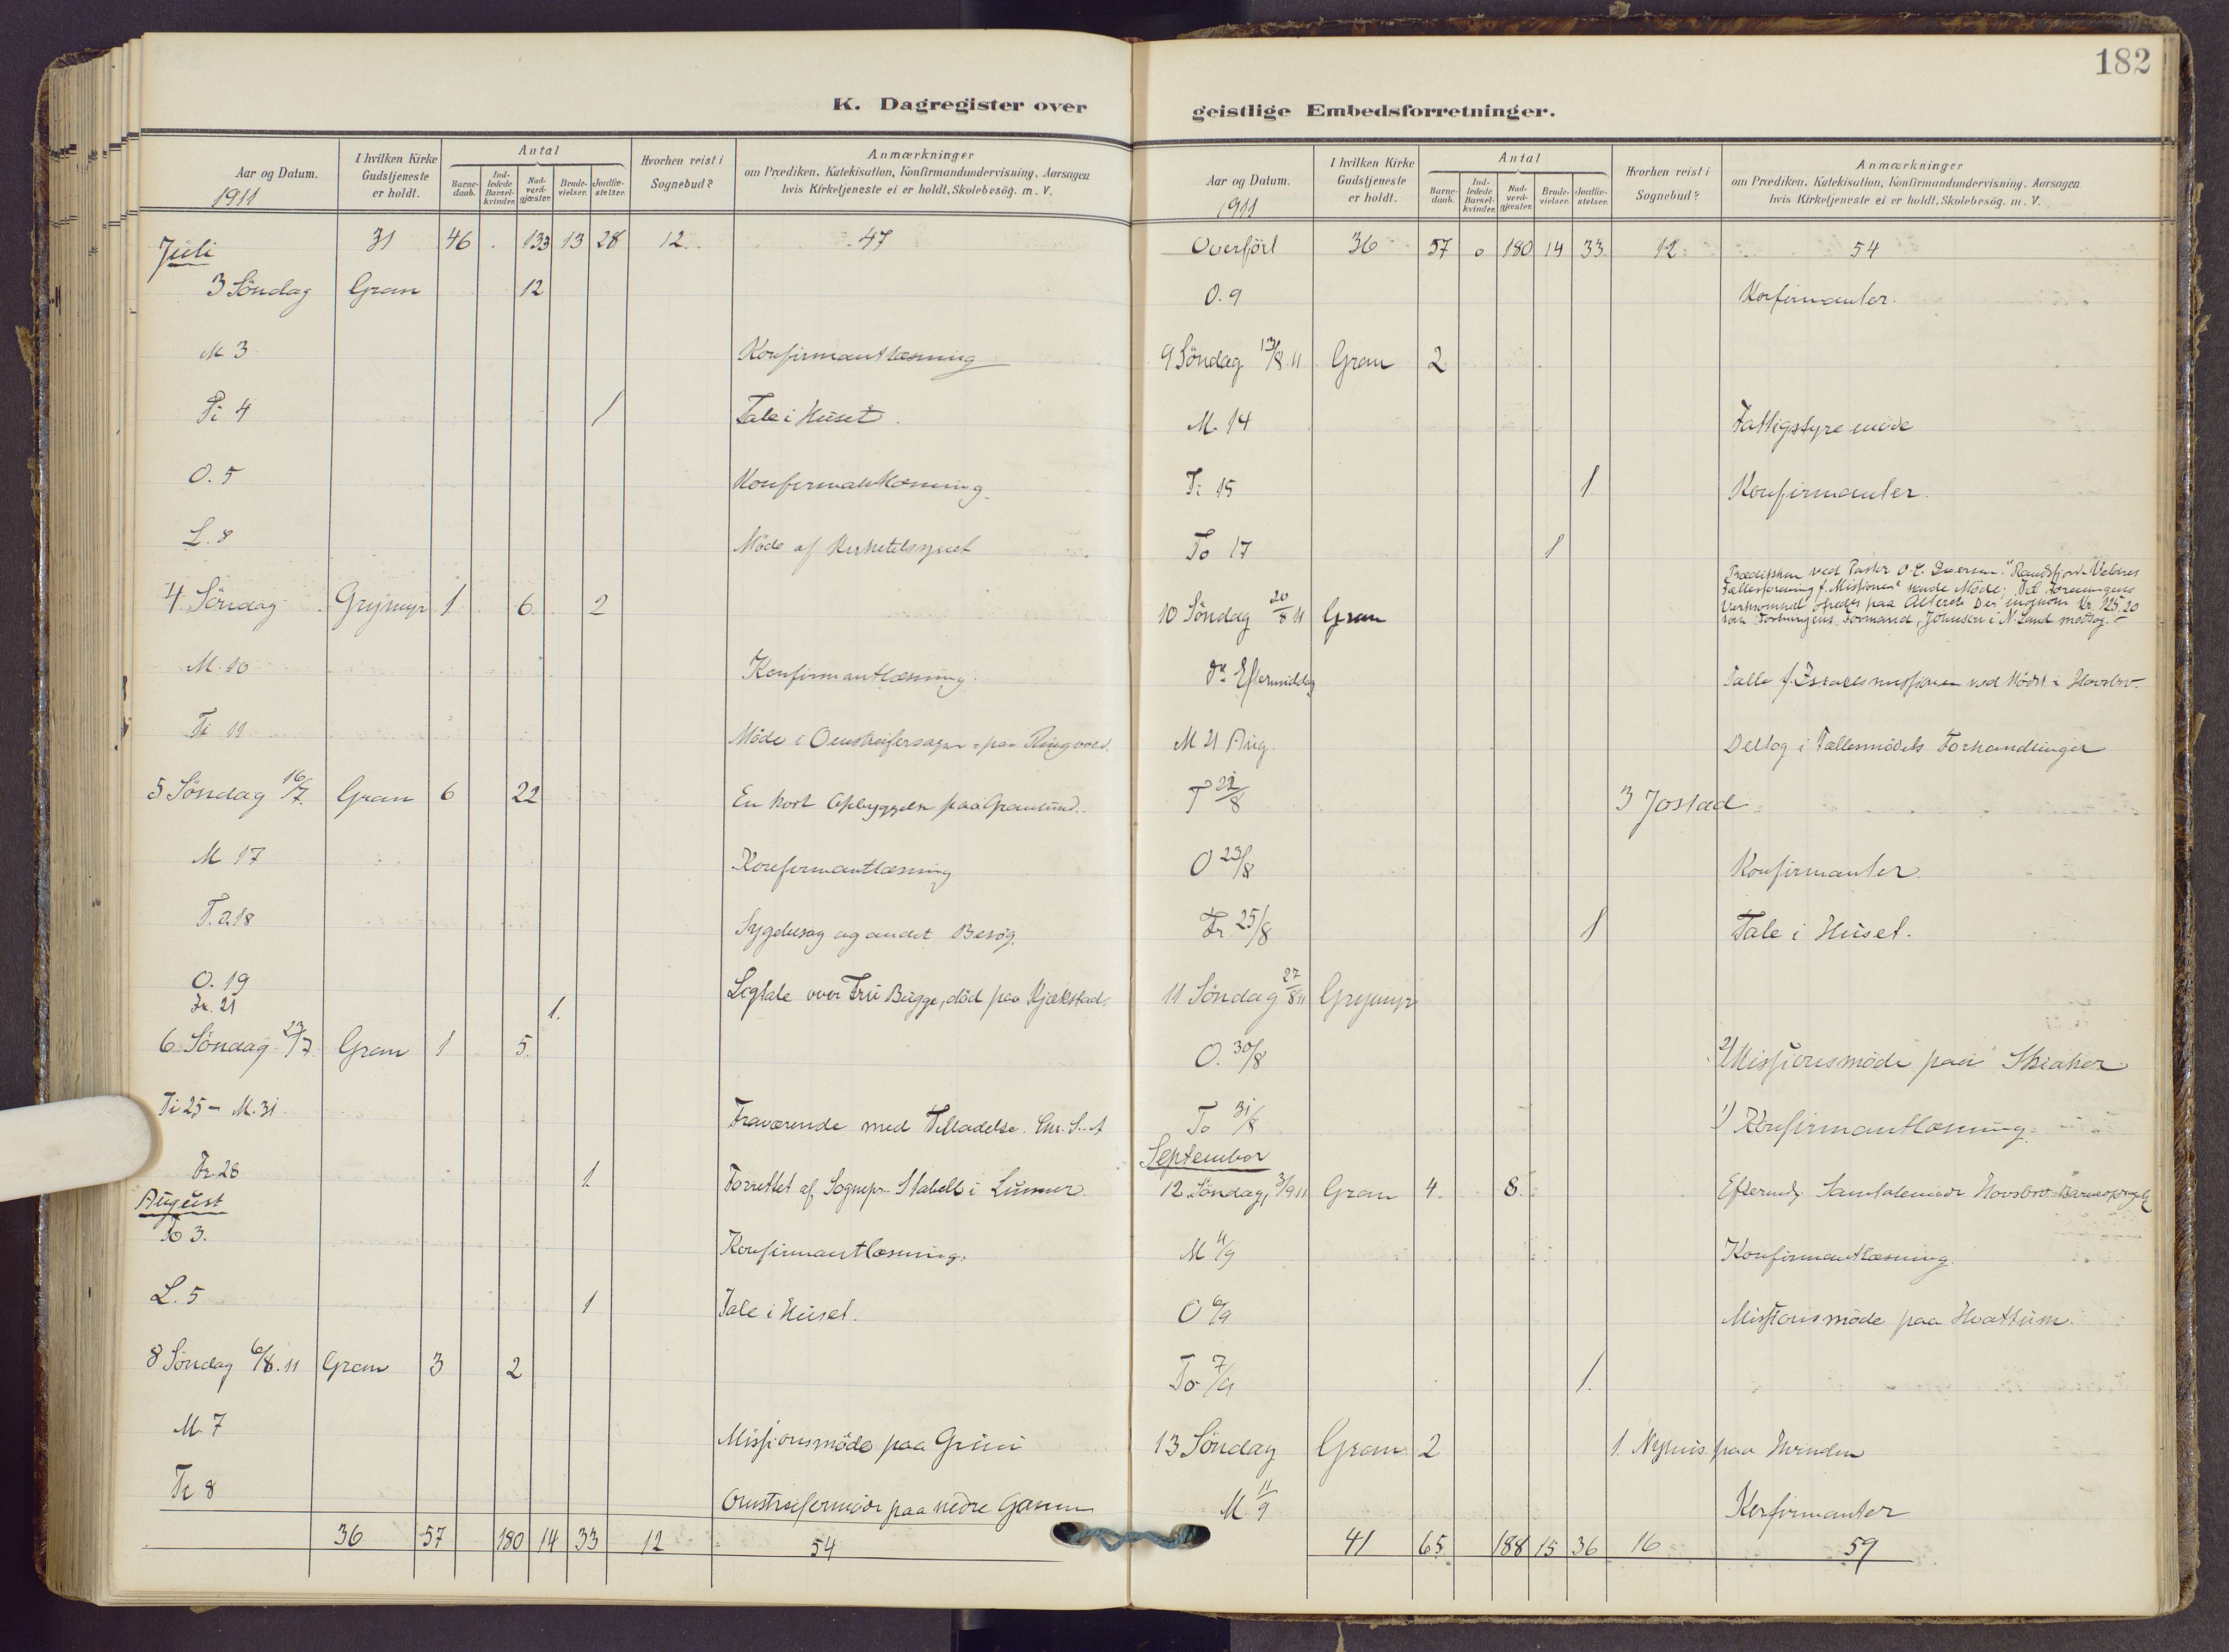 182
K. Dagregister over geistlige Embedsforretninger.
Aar og Datum. I hvilken Kirke Gudstjeneste er holdt. Antal Barnedaab. Indledede Barselkvinder. Nadverdgjæster. Brudevielser. Jordfæstelser. Hvorhen reist i Sognebud? Anmærkninger om Prædiken, Katekisation, Konfirmandundervisning, Aarsagen hvis Kirketjeneste ei er holdt, Skolebesög. m. V.
1911
Juli 31 46 . 133 13 28 12 47
3 Söndag Gran 12
M 3 Konfirmantlæsning
Ti 4 1 Tale i Huset.
O. 5 Konfirmantlæsning.
L. 8 Möde af Kirketilsynet
4 Söndag Grymyr 1 6 2
M. 10 Konfirmantlæsning.
Ti 11 Möde i Omstreifersagen paa Ringvold.
5 Söndag 16/7 Gran 6 22 En kort Opbyggelse paa Granlund.
M 17 Konfirmantlæsning
T. 18 Sygebesøg og andet Besög.
O. 19 Ligtale over Fru Bugge, död paa Kjækstad.
Fr. 21 1.
6 Söndag 23/7 Gran 1 5.
Ti 25 - M. 31 Fraværende med Tilladelse.
Fr. 28 1 Forrettet af Sognepr. Stabell i Lunner.
August
To 3. Konfirmantlæsning.
L. 5 1 Tale i Huset.
8 Söndag 6/8. 11 Gran 3 2
M. 7 Missionsmöde paa Grini
Ti 8 Omstreifermöde paa nedre Gamme
36 57 180 14 33 12 54
Aar og Datum. I hvilken Kirke Gudstjeneste er holdt. Antal Barnedaab. Indledede Barselkvinder. Nadverdgjæster. Brudevielser. Jordfæstelser. Hvorhen reist i Sognebud? Anmærkninger om Prædiken, Katekisation, Konfirmandundervisning, Aarsagen hvis Kirketjeneste ei er holdt, Skolebesög. m. V.
1911
Overfört 36 57 0 180 14 33 12 54
O. 9 Konfirmanter.
9 Söndag 13/8 11 Gran 2
M. 14 Fattigstyremöde
Ti 15 1 Konfirmanter.
To 17 1
Prædiken ved Pastor O. E. "Randsfjord-Valdres
Fællesforening f. Missionen" havde Möde; Til Foreningens
Virksomhed ofredes paa Alteret Kr. 125.20
som Foreningens Formand, Johnsen i N. Land modtog.
10 Söndag 20/8 11 Gran
Eftermiddag Talte f. Israelsmissionen ved Möde i Hovsbro.
M 21 Aug. Deltog i Fællesmödets Forhandlinger
T 22/8 3 Jostad
O 23/8 Konfirmanter.
Fr. 25/8 1 Tale i Huset.
11 Söndag 27/8 11 Grymyr
O. 30/8 2) Missionsmöde paa Skiaker
To 31/8 1) Konfirmantlæsning.
September
12 Söndag, 3/9 11 Gran 4 8 Samtalemöde Hovsbro
M 4/9 Konfirmantlæsning.
O 6/9 Missionsmöde paa Hvattum.
To 7/9 1.
13 Söndag Gran 2 1. Nyhuis paa Hvinden
M. 11/9 Konfirmanter
41 65 188 15 36 16 59